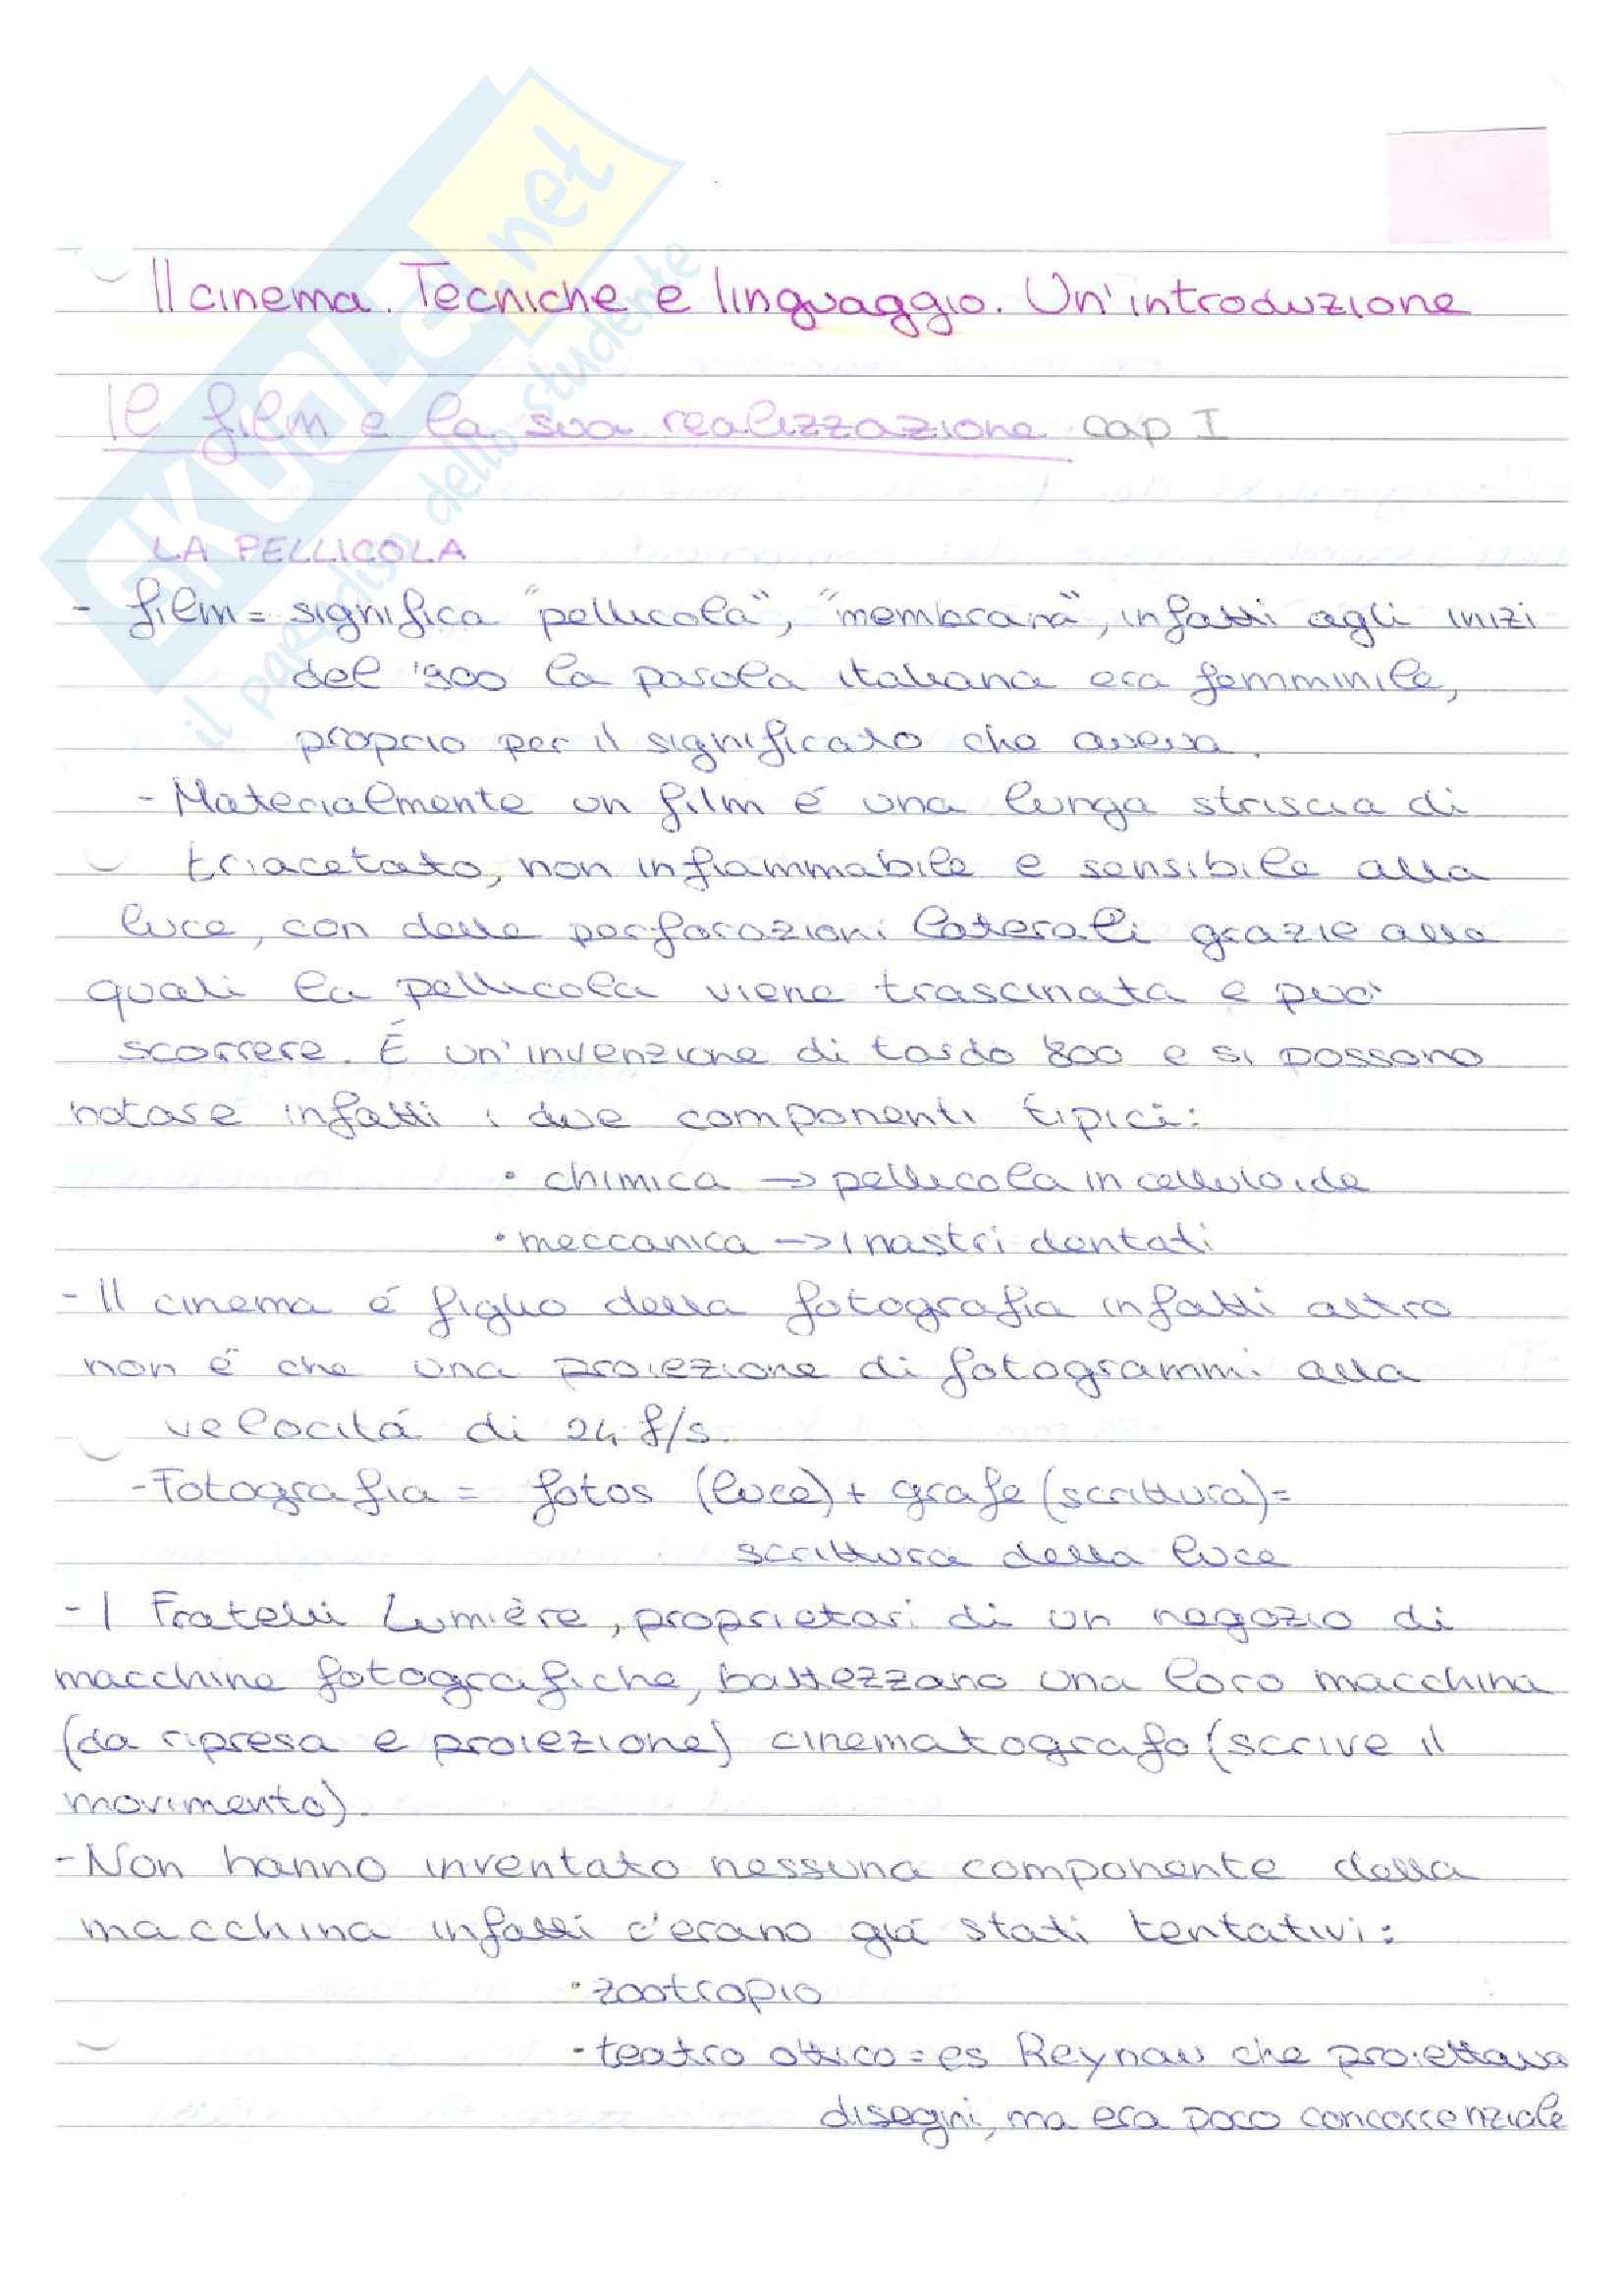 SKUOLA.net
il paradiso dello studente
Il cinema. Tecniche e linguaggio. Un'introduzione
Il film e la sua realizzazione cap I
LA PELLICOLA
- film = significa "pellicola", "membrana", infatti agli inizi
del '900 la parola italiana era femminile,
proprio per il significato che aveva.
- Materialmente un film é una lunga striscia di
triacetato, non infiammabile e sensibile alla
luce, con delle perforazioni laterali grazie alle
quali la pellicola viene trascinata e può
scorrere. É un'invenzione di tardo '800 e si possono
notare infatti i due componenti tipici:
• chimica → pellicola in celluloide
• meccanica → i nastri dentati
- Il cinema é figlio della fotografia infatti altro
non é che una proiezione di fotogrammi alla
velocitá di 24 f/s.
- Fotografia = fotos (luce) + grafe (scrittura) =
scrittura della luce
- I Fratelli Lumière, proprietari di un negozio di
macchine fotografiche, battezzano una loro macchina
(da ripresa e proiezione) cinematografo (scrive il
movimento).
- Non hanno inventato nessuna componente della
macchina infatti c'erano giá stati tentativi:
• zootropio
• teatro ottico = es Reynau che proiettava
disegni, ma era poco concorrenziale